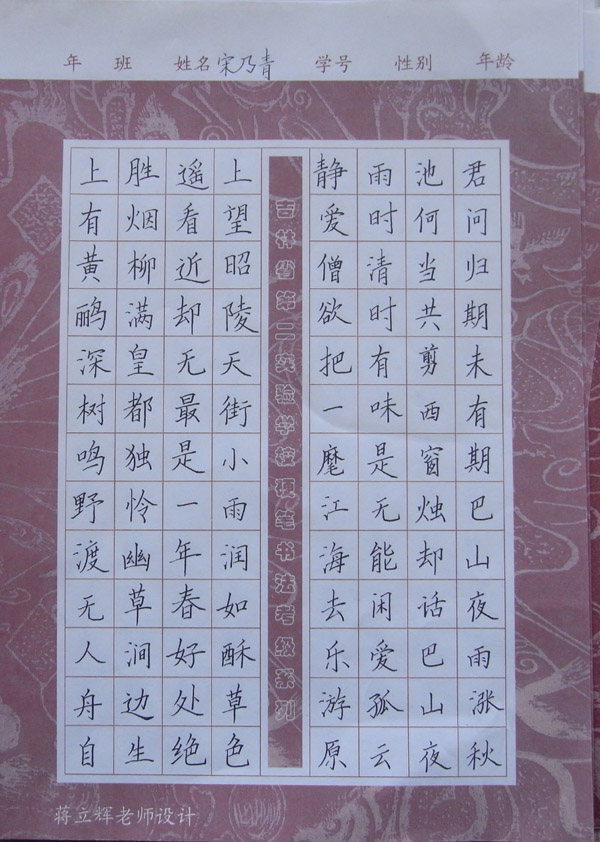 年 班 姓名 宋乃青 学号 性别 年龄
君问归期未有期巴山夜雨涨秋
池何当共剪西窗烛却话巴山夜
雨时清时有味是无能闲爱孤云
静爱僧欲把一麾江海去乐游原
吉林省第二实验学校硬笔书法考级系列
上望昭陵天街小雨润如酥草色
遥看近却无最是一年春好处绝
胜烟柳满皇都独怜幽草涧边生
上有黄鹂深树鸣野渡无人舟自
蒋立辉老师设计